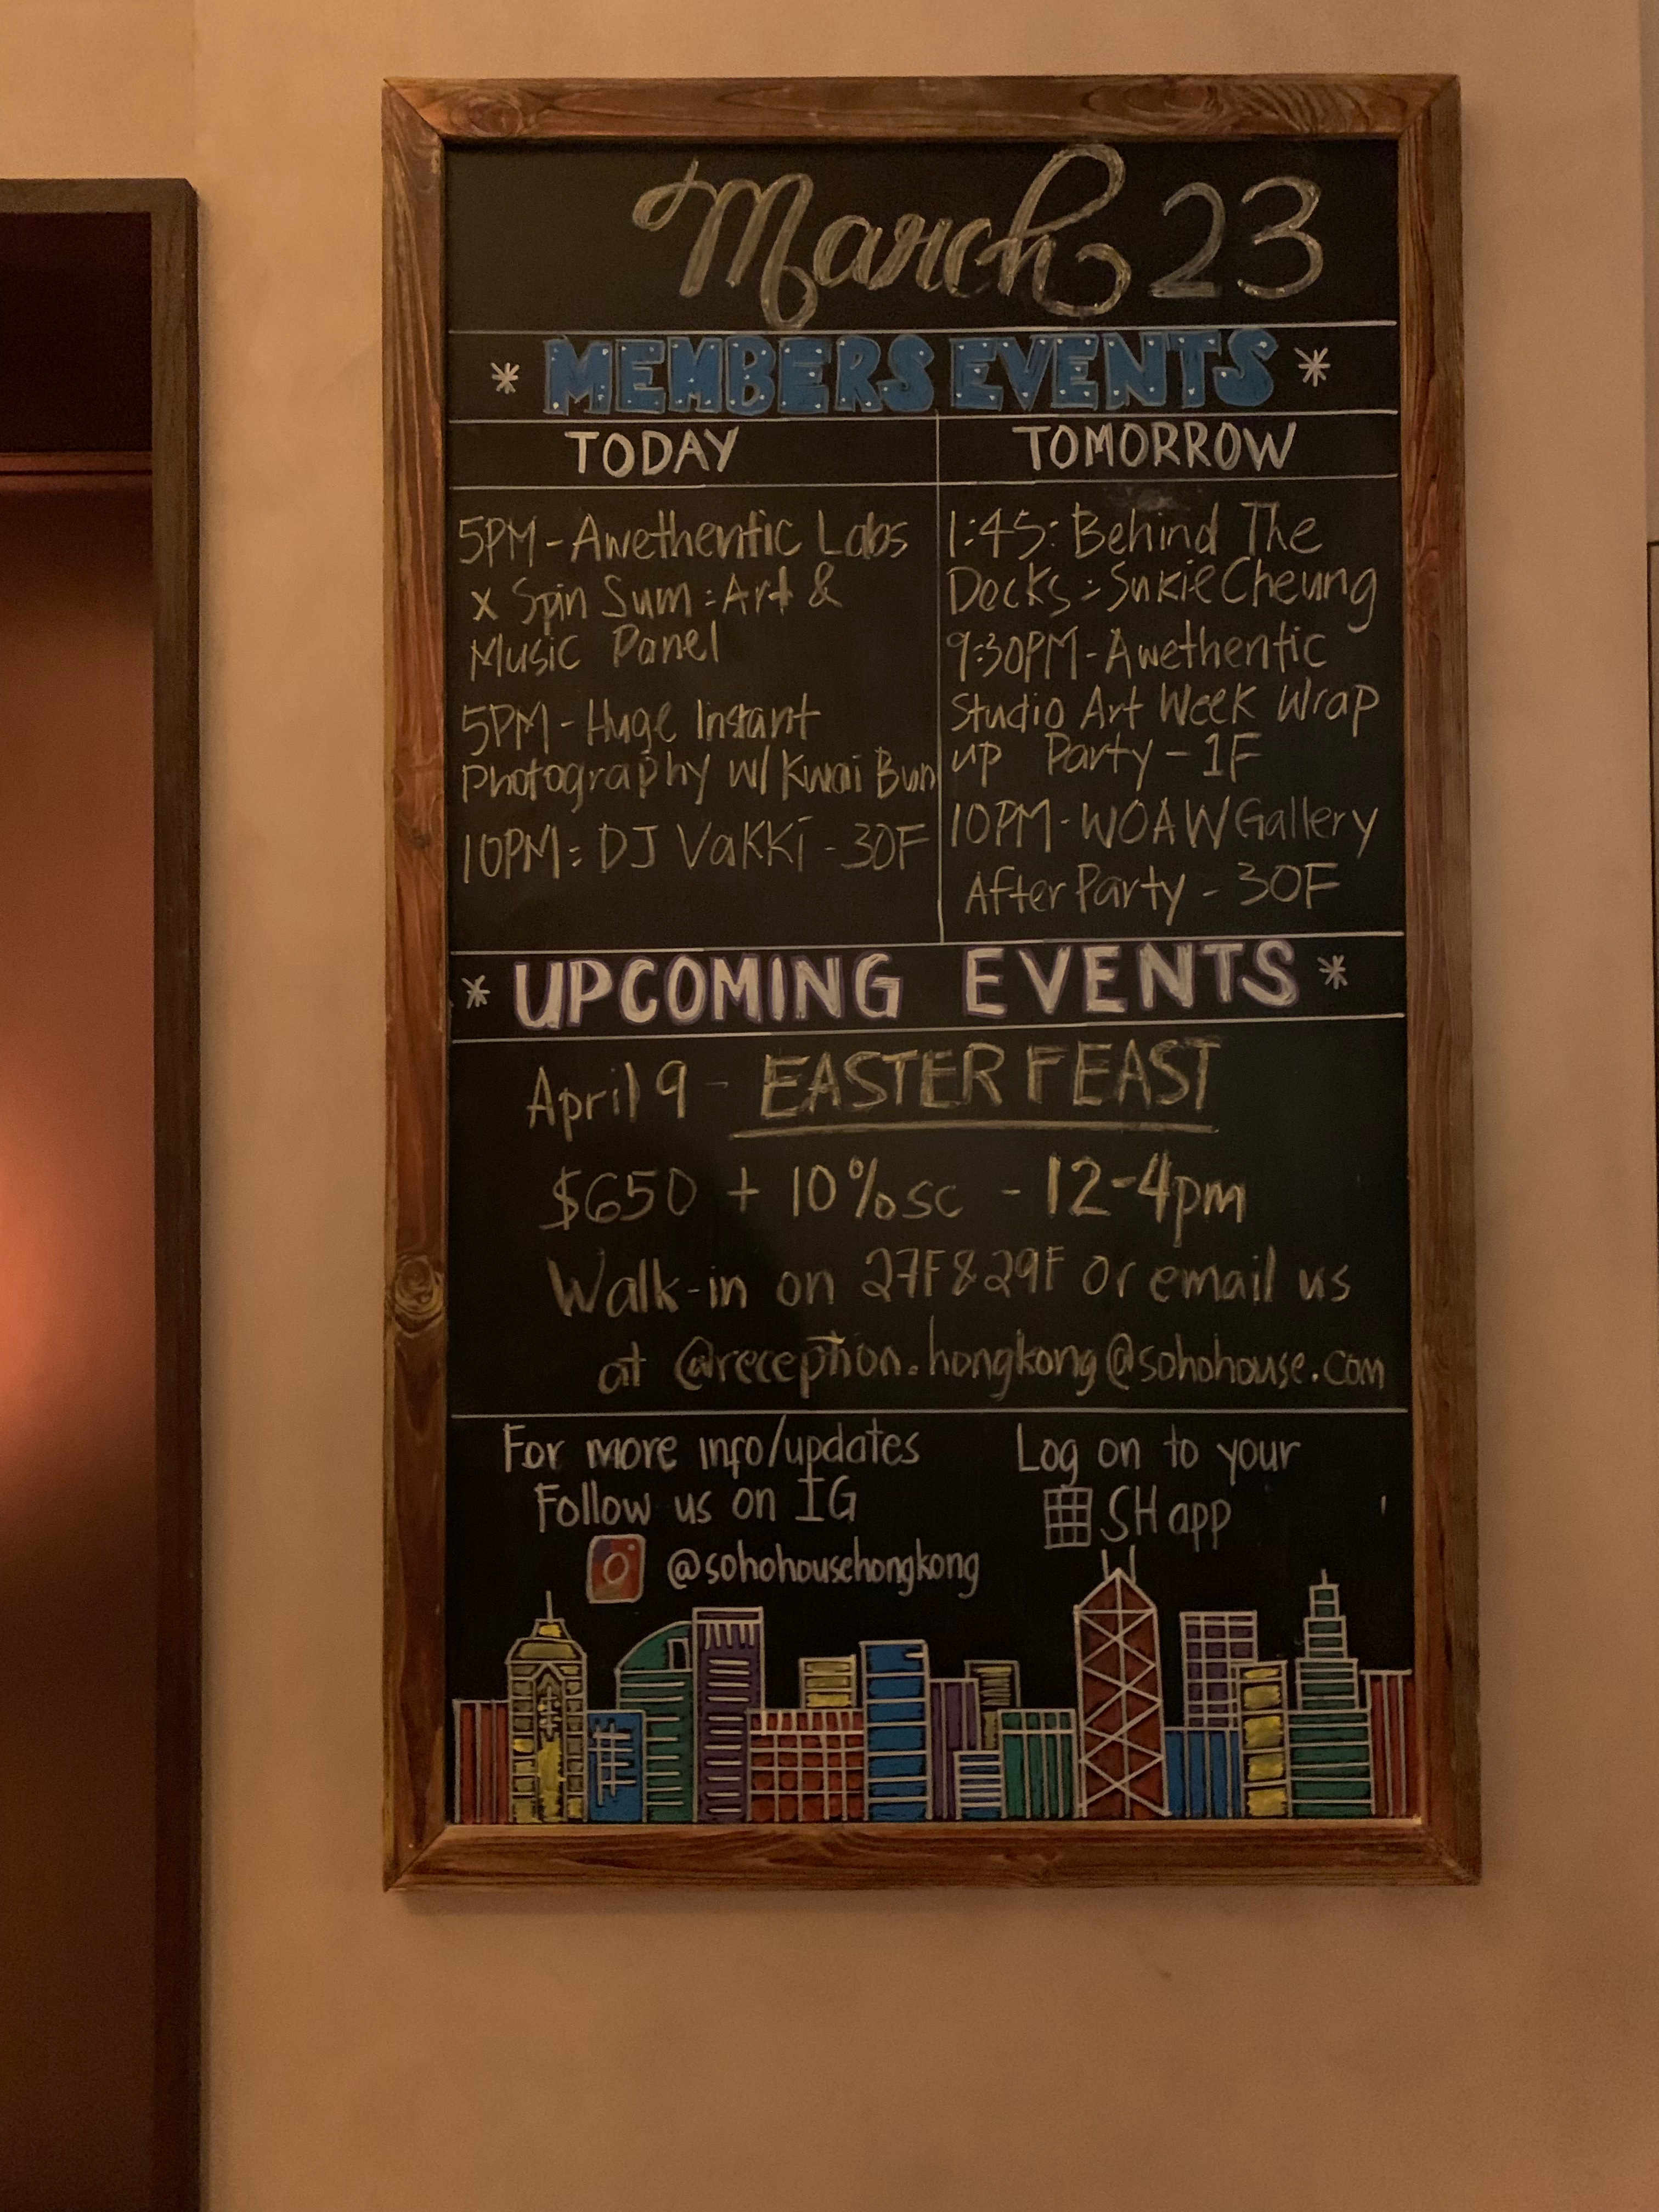 March 23
* MEMBERS EVENTS *
TODAY
5PM - Awethentic Labs
x Spin Sum : Art &
Music Panel
5PM - Huge Instant
Photography w/ Kwai Bun
10PM : DJ VaKKi - 30F
TOMORROW
1:45: Behind The
Decks : Sukie Cheung
9:30PM - Awethentic
Studio Art Week Wrap
up Party - 1F
10PM - WOAW Gallery
After Party - 30F
* UPCOMING EVENTS *
April 9 - EASTER FEAST
$650 + 10% sc - 12-4pm
Walk-in on 27F & 29F or email us
at @reception.hongkong@sohohouse.com
For more info/updates
Follow us on IG
@sohohousehongkong
Log on to your
SH app